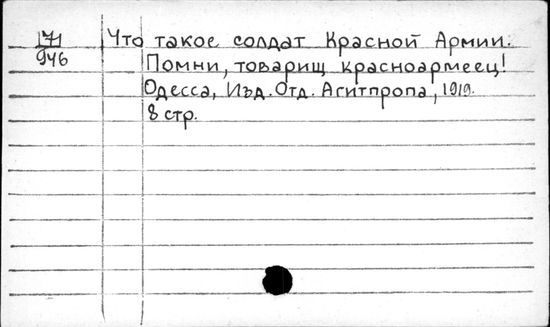 171 Что такое солдат Красной Армии.
946 Помни, товарищ красноармеец!
Одесса, Изд. Отд. Агитпропа, 1919.
8 стр.